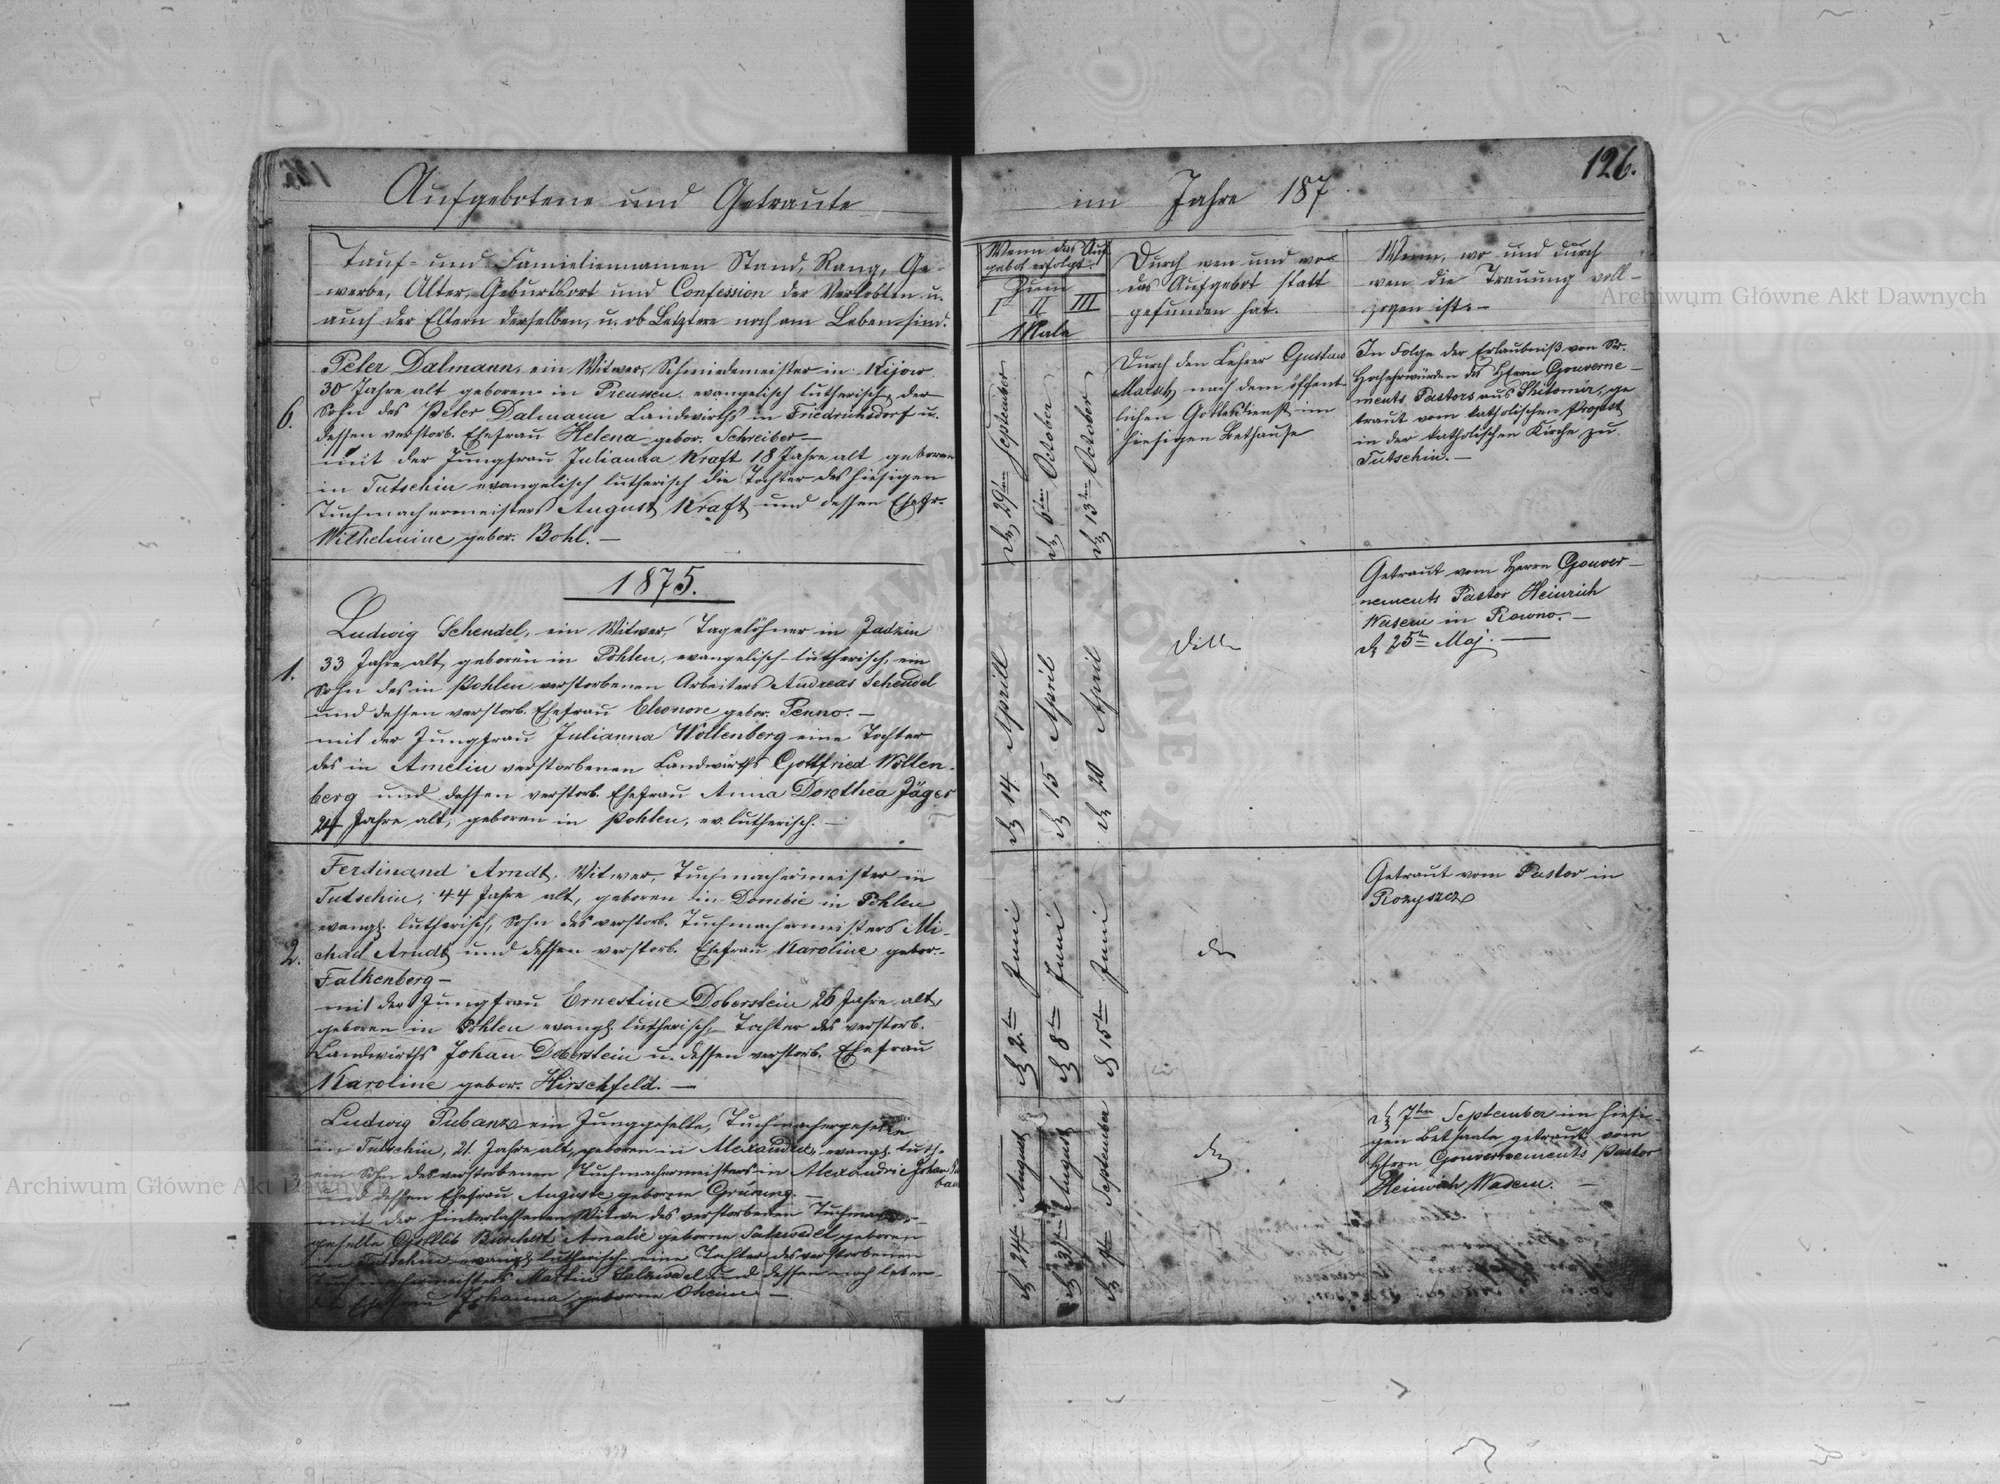 Aufgebotene und Getraute
Tauf- und Familiennamen Stand, Rang, Ge-
werbe, Alter, Geburtsort und Confession der Verlobten u.
auch der Eltern derselben, u. ob Letztere noch am Leben sind.
6.
Peter Dalmann, ein Witwer, Schmiedemeister in Kijow
30 Jahre alt geboren in Preussen evangelisch lutherisch, der
Sohn des Peter Dalmann Landwirths in Friedrichsdorf u.
dessen verstorb. Ehefrau Helena gebor. Schreiber —
mit der Jungfrau Julianna Kraft 18 Jahre alt geboren
in Tutschin evangelisch lutherisch die Tochter des hiesigen
Tuchmachermeisters August Kraft und dessen Ehefr.
Wilhelmine gebor. Bohl. —
1875.
1.
Ludwig Schendel, ein Witwer, Tagelöhner in
33 Jahre alt, geboren in Pohlen, evangelisch-lutherisch, ein
Sohn des in Pohlen verstorbenen Arbeiters Andreas Schendel
und dessen verstorb. Ehefrau Eleonore gebor. Penno. —
mit der Jungfrau Julianna Wollenberg eine Tochter
des in Amelin verstorbenen Landwirths Gottfried Wollen-
berg und dessen verstorb. Ehefrau Anna Dorothea Jäger
24 Jahre alt, geboren in Pohlen, ev. lutherisch. —
2.
Ferdinand Arndt, Witwer, Tuchmachermeister in
Tutschin, 44 Jahre alt, geboren in Dombie in Pohlen
evangl. lutherisch, Sohn des verstorb. Tuchmachermeisters Mi-
chael Arndt und dessen verstorb. Ehefrau Karoline gebor.
Falkenberg —
mit der Jungfrau Ernestine Doberstein 26 Jahre alt,
geboren in Pohlen evangl. lutherisch, Tochter des verstorb.
Landwirths Johan Doberstein u. dessen verstorb. Ehefrau
Karoline gebor. Hirschfeld. —
Ludwig ein Junggeselle, Tuchmachergeselle
in Tutschin, 21 Jahre alt, geboren in Alexandria, evangl. luth.
ein Sohn des verstorbenen Tuchmachermeisters in Alexandrie Johan
und dessen Ehefrau Auguste geborne Grüning. —
mit der hinterlassenen Witwe des verstorbenen Tuchmacher-
geselle Gottlieb Amalie geborne Salzwedel, geboren
in Tutschin evangl. lutherisch eine Tochter des verstorbenen
Tuchmachermeisters Martin Salzwedel und dessen noch leben-
den Ehefrau Johanna geborne —
126.
im Jahre 187
Wenn das Auf-
gebot erfolgt.
Zum
I II III
Male
Durch wen und wo
das Aufgebot statt
gefunden hat.
Wann, wo und durch
wen die Trauung voll-
zogen ist. —
d. 29ten September
d. 6ten October
d. 13ten October
Durch den Lehrer Gustaw
nach dem öffent-
lichen Gottesdienst im
hiesigen Bethause
In Folge der Erlaubniß von Sr.
Hochehrwürden des Herrn Gouverne-
ments Pastors aus Shitomir, ge-
traut vom katholischen Probst
in der katholischen Kirche zu
Tutschin. —
d. 14 Aprill
d. 15 April
d. 20 April
Getraut vom Herrn Gouver-
nements Pastor Heinrich
Wasem in Rowno. —
d. 25ten Maj. —
d. 2ten Juni
d. 8ten Juni
d. 15ten Juni
do
Getraut vom Pastor in
Rozyszcz
d. 24ten August
d. 31ten August
d. September
do
d. 7ten September im hiesi-
gen Betsaale getraut vom
Herrn Gouvernements Pastor
Heinrich Wasem. —
Archiwum Główne Akt Dawnych
Archiwum Główne Akt Dawnych